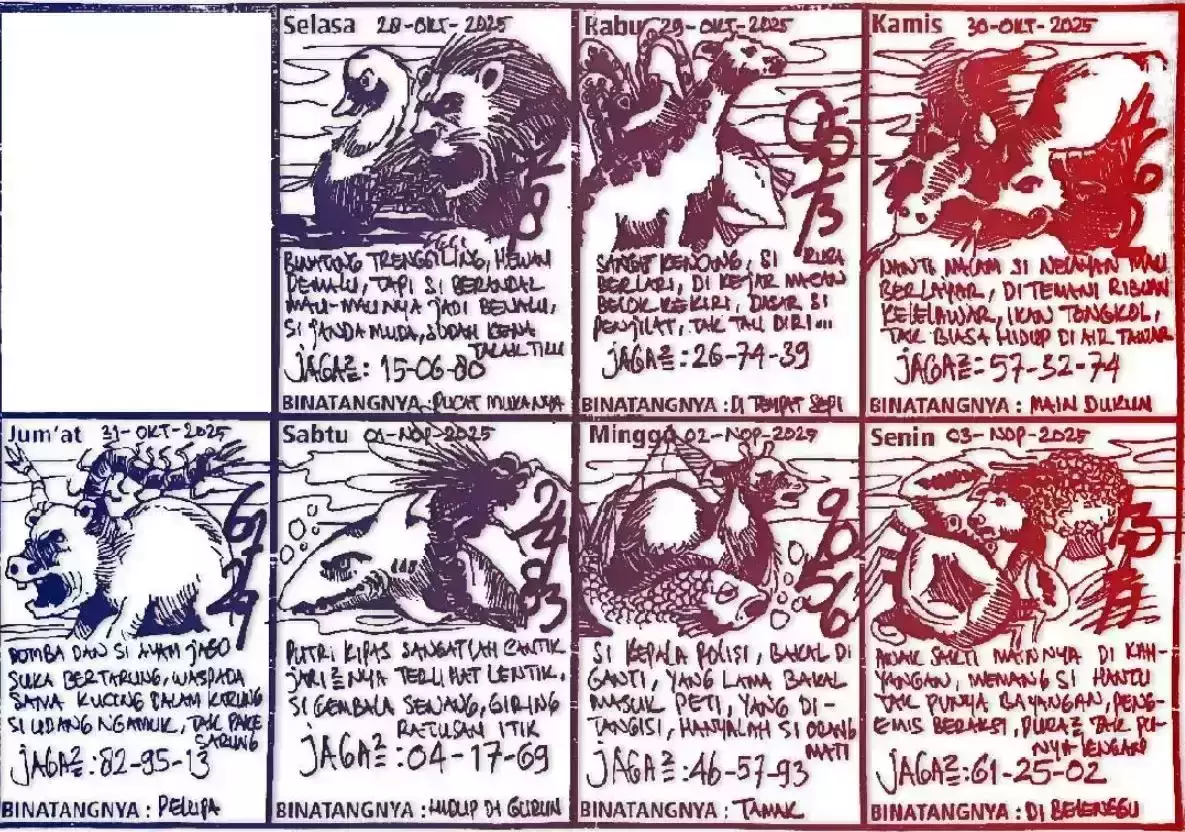 Selasa 28-OKT-2025
BINATANG TRENGGILING, HEWAN
PEMALU, TAPI SI BERANDAL
MAU-MAUNYA JADI BENALU,
SI JANDA MUDA, SUDAH KENA
JAGA2=: 15-06-80
BINATANGNYA : PUCAT MUKANYA
Rabu 29-OKT-2025
SANGAT KENCANG, SI RUSA
BERLARI, DI KEJAR MACAN
BELOK KEKIRI, DASAR SI
PENJILAT, TAK TAU DIRI...
JAGA2=: 26-74-39
BINATANGNYA : DI TEMPAT SEPI
Kamis 30-OKT-2025
NANTI MALAM SI NELAYAN MAU
BERLAYAR, DI TEMANI RIBUAN
KELELAWAR, IKAN TONGKOL,
TAK BIASA HIDUP DI AIR TAWAR
JAGA2=: 57-32-74
BINATANGNYA : MAIN DUKUN
Jum'at 31-OKT-2025
DOMBA DAN SI AYAM JAGO
SUKA BERTARUNG, WASPADA
SAMA KUCING DALAM KARUNG
SI UDANG NGAMUK, TAK PAKE
SARUNG
JAGA2=: 82-95-13
BINATANGNYA : PELUPA
Sabtu 01-NOP-2025
PUTRI KIPAS SANGATLAH CANTIK
JARI2=NYA TERLIHAT LENTIK,
SI GEMBALA SENANG, GIRING
RATUSAN ITIK
JAGA2=: 04-17-69
BINATANGNYA : HIDUP DI GURUN
Minggu 02-NOP-2025
SI KEPALA POLISI, BAKAL DI
GANTI, YANG LAMA BAKAL
MASUK PETI, YANG DI-
TANGISI, HANYALAH SI ORANG
MATI
JAGA2=: 46-57-93
BINATANGNYA : TAMAK
Senin 03-NOP-2025
ANAK SAKTI MAINNYA DI KAH-
YANGAN, MENANG SI HANTU
TAK PUNYA BAYANGAN, PENG-
EMIS BERAKSI, PURA2= TAK PU-
NYA LENGAN
JAGA2=: 61-25-02
BINATANGNYA : DI BELENGGU